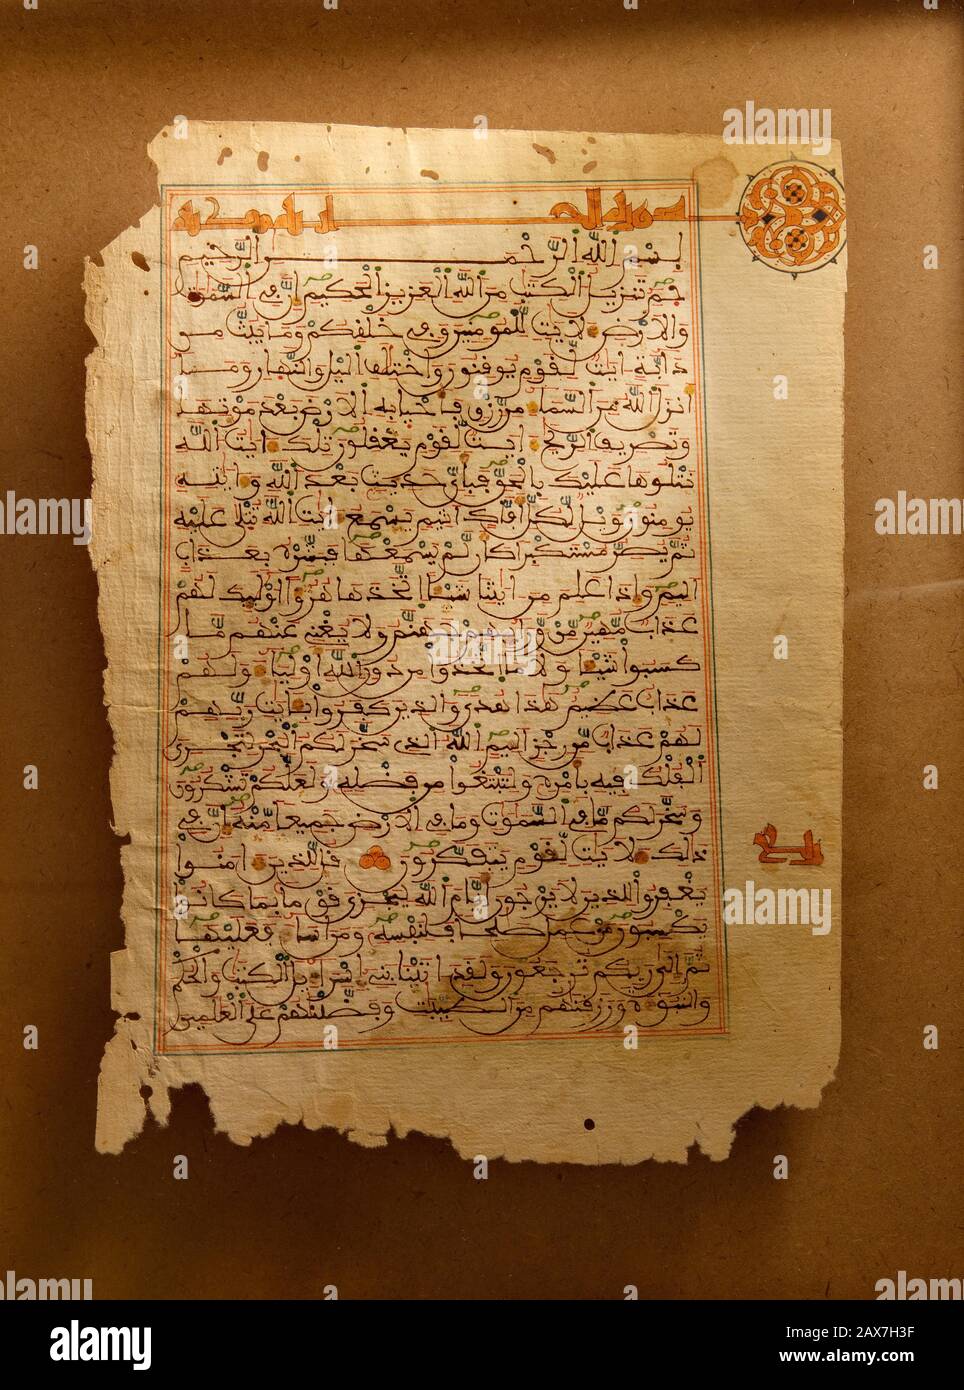 بسم الله الرحمن الرحيم
حم تنزيل الكتب من الله العزيز الحكيم ان في السموت
والارض لايت للمومنين وفي خلقكم وما يبث من
دابة ايت لقوم يوقنون واختلف اليل والنهار وما
انزل الله من السماء من رزق فاحيا به الارض بعد موتها
وتصريف الريح ايت لقوم يعقلون تلك ايت الله
نتلوها عليك بالحق فباي حديث بعد الله وايته
يومنون ويل لكل افاك اثيم يسمع ايت الله تتلى عليه
ثم يصر مستكبرا كان لم يسمعها فبشره بعذاب
اليم واذا علم من ايتنا شيئا اتخذها هزؤا اولئك لهم
عذاب مهين من ورائهم جهنم ولا يغني عنهم ما
كسبوا شيئا ولا ما اتخذوا من دون الله اولياء ولهم
عذاب عظيم هذا هدى والذين كفروا بايت ربهم
لهم عذاب من رجز اليم الله الذي سخر لكم البحر لتجري
الفلك فيه بامره ولتبتغوا من فضله ولعلكم تشكرون
وسخر لكم ما في السموت وما في الارض جميعا منه ان في
ذلك لايت لقوم يتفكرون قل للذين امنوا
يغفروا للذين لا يرجون ايام الله ليجزي قوما بما كانوا
يكسبون من عمل صلحا فلنفسه ومن اساء فعليها
ثم الى ربكم ترجعون ولقد اتينا بني اسراءيل الكتب والحكم
والنبوة ورزقنهم من الطيبت وفضلنهم على العلمين
alamy
Image ID: 2AX7H3F
www.alamy.com